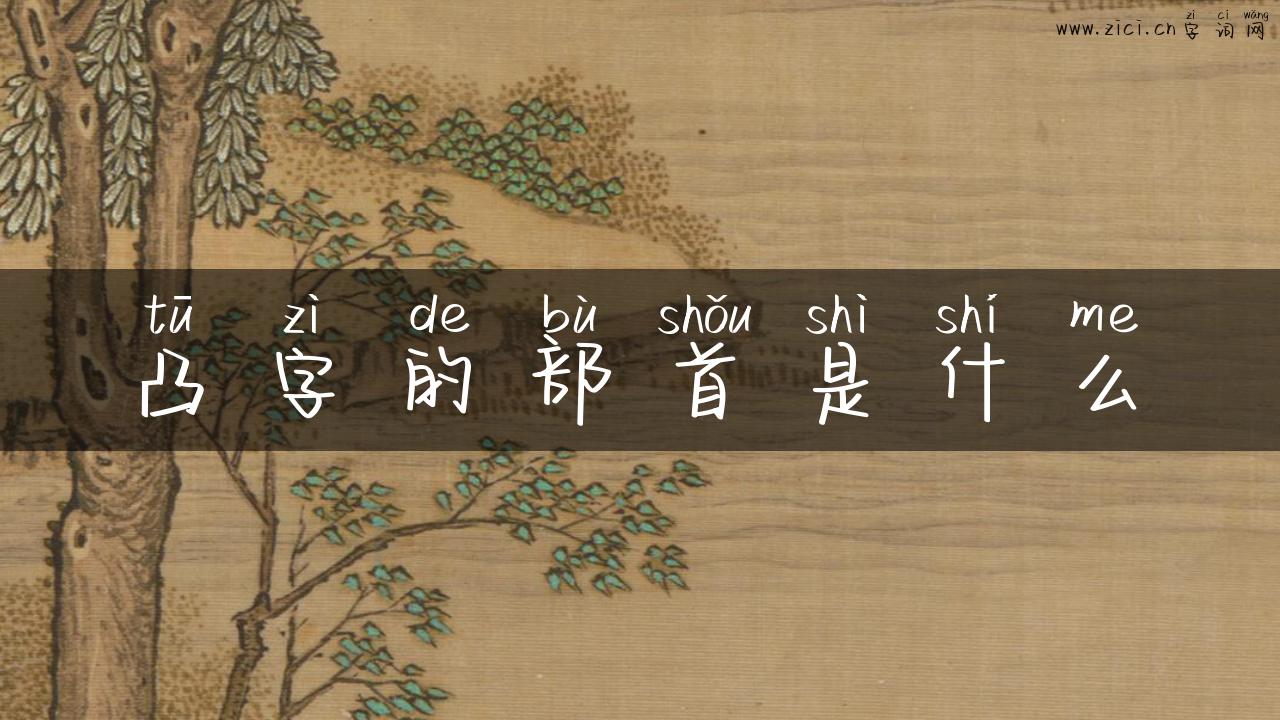 zì cí wǎng
www.zici.cn 字词网
tū zì de bù shǒu shì shí me
凸字的部首是什么